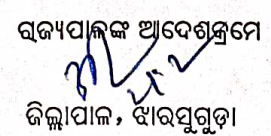 ରାଜ୍ୟପାଳଙ୍କ ଆଦେଶକ୍ରମେ
ଜିଲ୍ଲାପାଳ, ଝାରସୁଗୁଡ଼ା